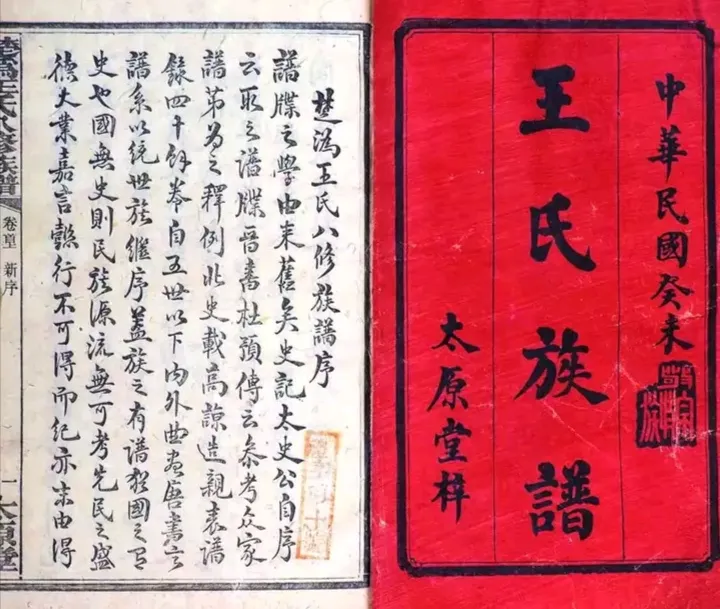 中華民國癸未
王氏族譜
太原堂梓
楚溈王氏八修族譜序
譜牒之學由來舊矣史記太史公自序
云取之譜牒晉書杜預傳云參考众家
譜第為之釋例北史載高諒造親表譜
錄四十餘卷自五世以下内外曲盡唐書言
譜系以統世族繼序蓋族之有譜猶國之有
史也國無史則民族源流無可考先民之盛
德大業嘉言懿行不可得而紀亦末由得
楚溈王氏八修族譜
新序
一
太原堂